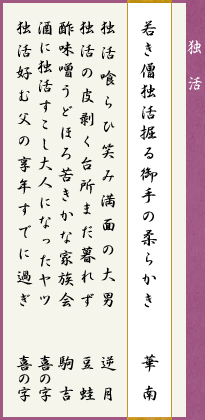 独活
若き僧独活掘る御手の柔らかき 華南
独活喰らひ笑み満面の大男 逆月
独活の皮剥く台所まだ暮れず 豆蛙
酢味噌うどほろ苦きかな家族会 駒吉
酒に独活すこし大人になったヤツ 喜の字
独活好む父の享年すでに過ぎ 喜の字